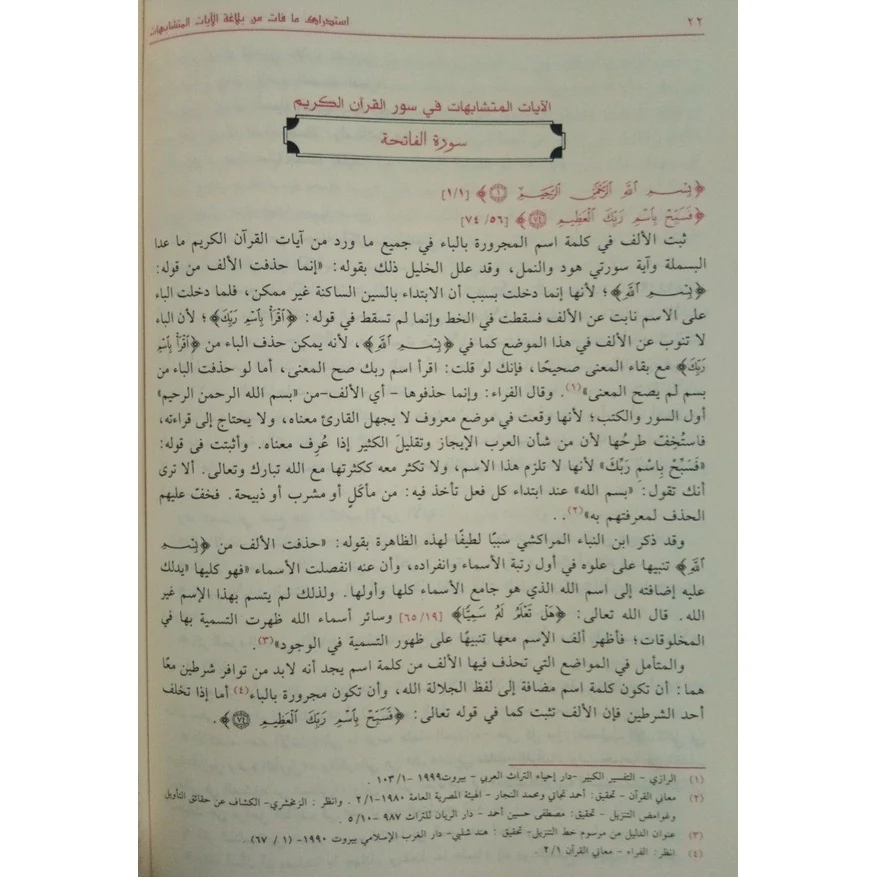 ٢٢
استدراك ما فات من بلاغة الآيات المتشابهات
الآيات المتشابهات في سور القرآن الكريم
سورة الفاتحة
﴿بِسْمِ ٱللَّهِ ٱلرَّحْمَٰنِ ٱلرَّحِيمِ ۝١﴾ [١/١]
﴿فَسَبِّحْ بِاسْمِ رَبِّكَ ٱلْعَظِيمِ ۝٧٤﴾ [٧٤/٥٦]
ثبت الألف في كلمة اسم المجرورة بالباء في جميع ما ورد من آيات القرآن الكريم ما عدا
البسملة وآية سورتي هود والنمل، وقد علل الخليل ذلك بقوله: «إنما حذفت الألف من قوله:
﴿بِسْمِ ٱللَّهِ﴾؛ لأنها إنما دخلت بسبب أن الابتداء بالسين الساكنة غير ممكن، فلما دخلت الباء
على الاسم نابت عن الألف فسقطت في الخط وإنما لم تسقط في قوله: ﴿ٱقْرَأْ بِاسْمِ رَبِّكَ﴾؛ لأن الباء
لا تنوب عن الألف في هذا الموضع كما في ﴿بِسْمِ ٱللَّهِ﴾، لأنه يمكن حذف الباء من ﴿ٱقْرَأْ بِاسْمِ
رَبِّكَ﴾ مع بقاء المعنى صحيحًا، فإنك لو قلت: اقرأ اسم ربك صح المعنى، أما لو حذفت الباء من
بسم لم يصح المعنى»(١). وقال الفراء: وإنما حذفوها - أي الألف-من «بسم الله الرحمن الرحيم»
أول السور والكتب؛ لأنها وقعت في موضع معروف لا يجهل القارئ معناه، ولا يحتاج إلى قراءته،
فاستُخِفّ طرحُها لأن من شأن العرب الإيجاز وتقليلَ الكثير إذا عُرِف معناه. وأثبتت في قوله:
«فَسَبِّحْ بِاسْمِ رَبِّكَ» لأنها لا تلزم هذا الاسم، ولا تكثر معه ككثرتها مع الله تبارك وتعالى. ألا ترى
أنك تقول: «بسم الله» عند ابتداء كل فعل تأخذ فيه: من مأكَلٍ أو مشرب أو ذبيحة. فخفّ عليهم
الحذف لمعرفتهم به»(٢)..
وقد ذكر ابن النباء المراكشي سببًا لطيفًا لهذه الظاهرة بقوله: «حذفت الألف من ﴿بِسْمِ
ٱللَّهِ﴾ تنبيها على علوه في أول رتبة الأسماء وانفراده، وأن عنه انفصلت الأسماء «فهو كليها «يدلك
عليه إضافته إلى اسم الله الذي هو جامع الأسماء كلها وأولها. ولذلك لم يتسم بهذا الإسم غير
الله. قال الله تعالى: ﴿هَلْ تَعْلَمُ لَهُۥ سَمِيًّا﴾ [٦٥/١٩] وسائر أسماء الله ظهرت التسمية بها في
المخلوقات؛ فأظهر ألف الإسم معها تنبيهًا على ظهور التسمية في الوجود»(٣).
والمتأمل في المواضع التي تحذف فيها الألف من كلمة اسم يجد أنه لابد من توافر شرطين معًا
هما: أن تكون كلمة اسم مضافة إلى لفظ الجلالة الله، وأن تكون مجرورة بالباء(٤) أما إذا تخلف
أحد الشرطين فإن الألف تثبت كما في قوله تعالى: ﴿فَسَبِّحْ بِاسْمِ رَبِّكَ ٱلْعَظِيمِ ۝٧٤﴾.
(١) الرازي - التفسير الكبير -دار إحياء التراث العربي - بيروت١٩٩٩ -١٠٣/١ .
(٢) معاني القرآن - تحقيق: أحمد نجاتي ومحمد النجار - الهيئة المصرية العامة ١٩٨٠-٢/١ . وانظر : الزمخشري- الكشاف عن حقائق التأويل
وغوامض التنزيل - تحقيق: مصطفى حسين أحمد - دار الريان للتراث ٩٨٧ -٥/١٠ .
(٣) عنوان الدليل من مرسوم خط التنزيل- تحقيق : هند شلبي- دار الغرب الإسلامي بيروت ١٩٩٠- (١ / ٦٧)
(٤) انظر: الفراء - معاني القرآن ٢/١ .